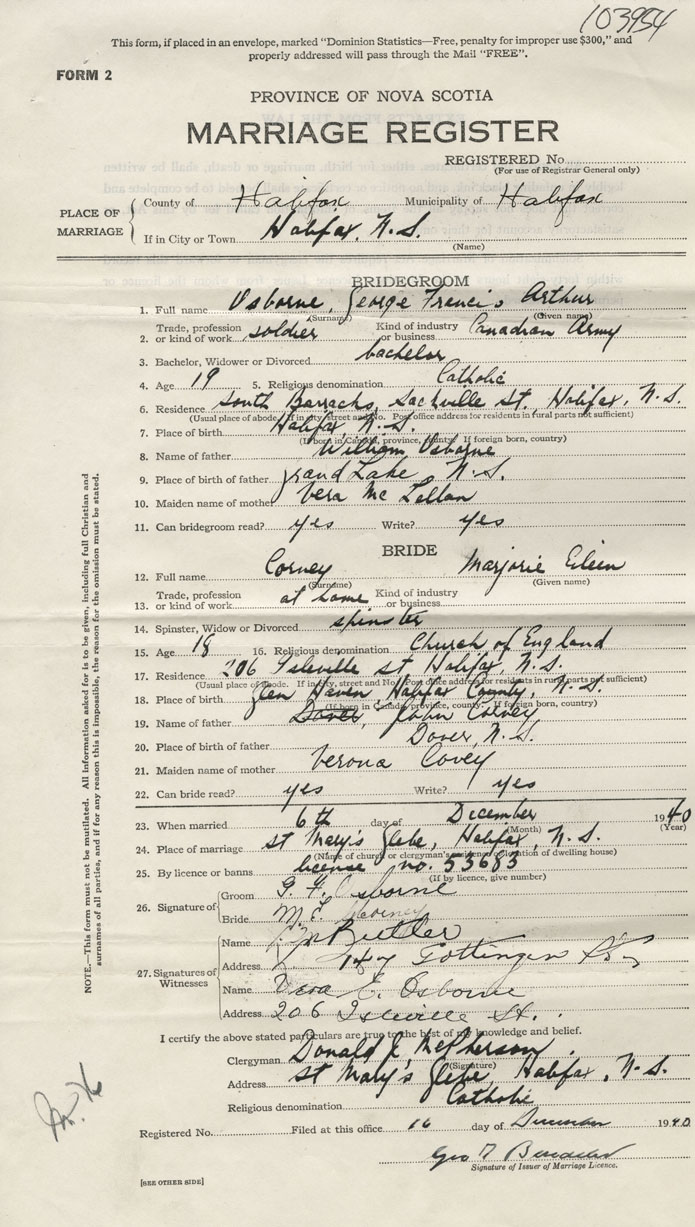 103954
This form, if placed in an envelope, marked "Dominion Statistics—Free, penalty for improper use $300," and
properly addressed will pass through the Mail "FREE".
FORM 2
PROVINCE OF NOVA SCOTIA
MARRIAGE REGISTER
REGISTERED No.
(For use of Registrar General only)
PLACE OF MARRIAGE
County of Halifax Municipality of Halifax
If in City or Town Halifax, N.S.
(Name)
BRIDEGROOM
1. Full name Osborne, George Francis Arthur
(Surname) (Given name)
2. Trade, profession or kind of work soldier Kind of industry or business Canadian Army
3. Bachelor, Widower or Divorced bachelor
4. Age 19 5. Religious denomination Catholic
6. Residence South Barracks, Sackville St., Halifax, N.S.
(Usual place of abode. If in city, street and No. Post office address for residents in rural parts not sufficient)
7. Place of birth Halifax, N.S.
(If born in Canada, province, county. If foreign born, country)
8. Name of father William Osborne
9. Place of birth of father Grand Lake, N.S.
10. Maiden name of mother Vera McLellan
11. Can bridegroom read? yes Write? yes
BRIDE
12. Full name Corney Marjorie Eileen
(Surname) (Given name)
13. Trade, profession or kind of work at home Kind of industry or business
14. Spinster, Widow or Divorced spinster
15. Age 18 16. Religious denomination Church of England
17. Residence 206 Isleville St Halifax, N.S.
(Usual place of abode. If in city, street and No. Post office address for residents in rural parts not sufficient)
18. Place of birth Glen Haven, Halifax County, N.S.
(If born in Canada, province, county. If foreign born, country)
19. Name of father Dover, John Corney
20. Place of birth of father Dover, N.S.
21. Maiden name of mother Verona Covey
22. Can bride read? yes Write? yes
23. When married 6th day of December 1940
(Month) (Year)
24. Place of marriage St Mary's Glebe, Halifax, N.S.
(Name of church or clergyman's residence or location of dwelling house)
25. By licence or banns license no. 53683
(If by licence, give number)
26. Signature of
Groom G. F. Osborne
Bride M. E. Corney
27. Signatures of Witnesses
Name Butler
Address 147 Gottingen St
Name Vera E. Osborne
Address 206 Isleville St.
I certify the above stated particulars are true to the best of my knowledge and belief.
Clergyman Donald J. McPherson
(Signature)
Address St Mary's Glebe Halifax, N.S.
Religious denomination Catholic
Registered No. Filed at this office 16 day of December 1940
Geo
Signature of Issuer of Marriage Licence.
[SEE OTHER SIDE]
NOTE.—This form must not be mutilated. All information asked for is to be given, including full Christian and
surnames of all parties, and if for any reason this is impossible, the reason for the omission must be stated.